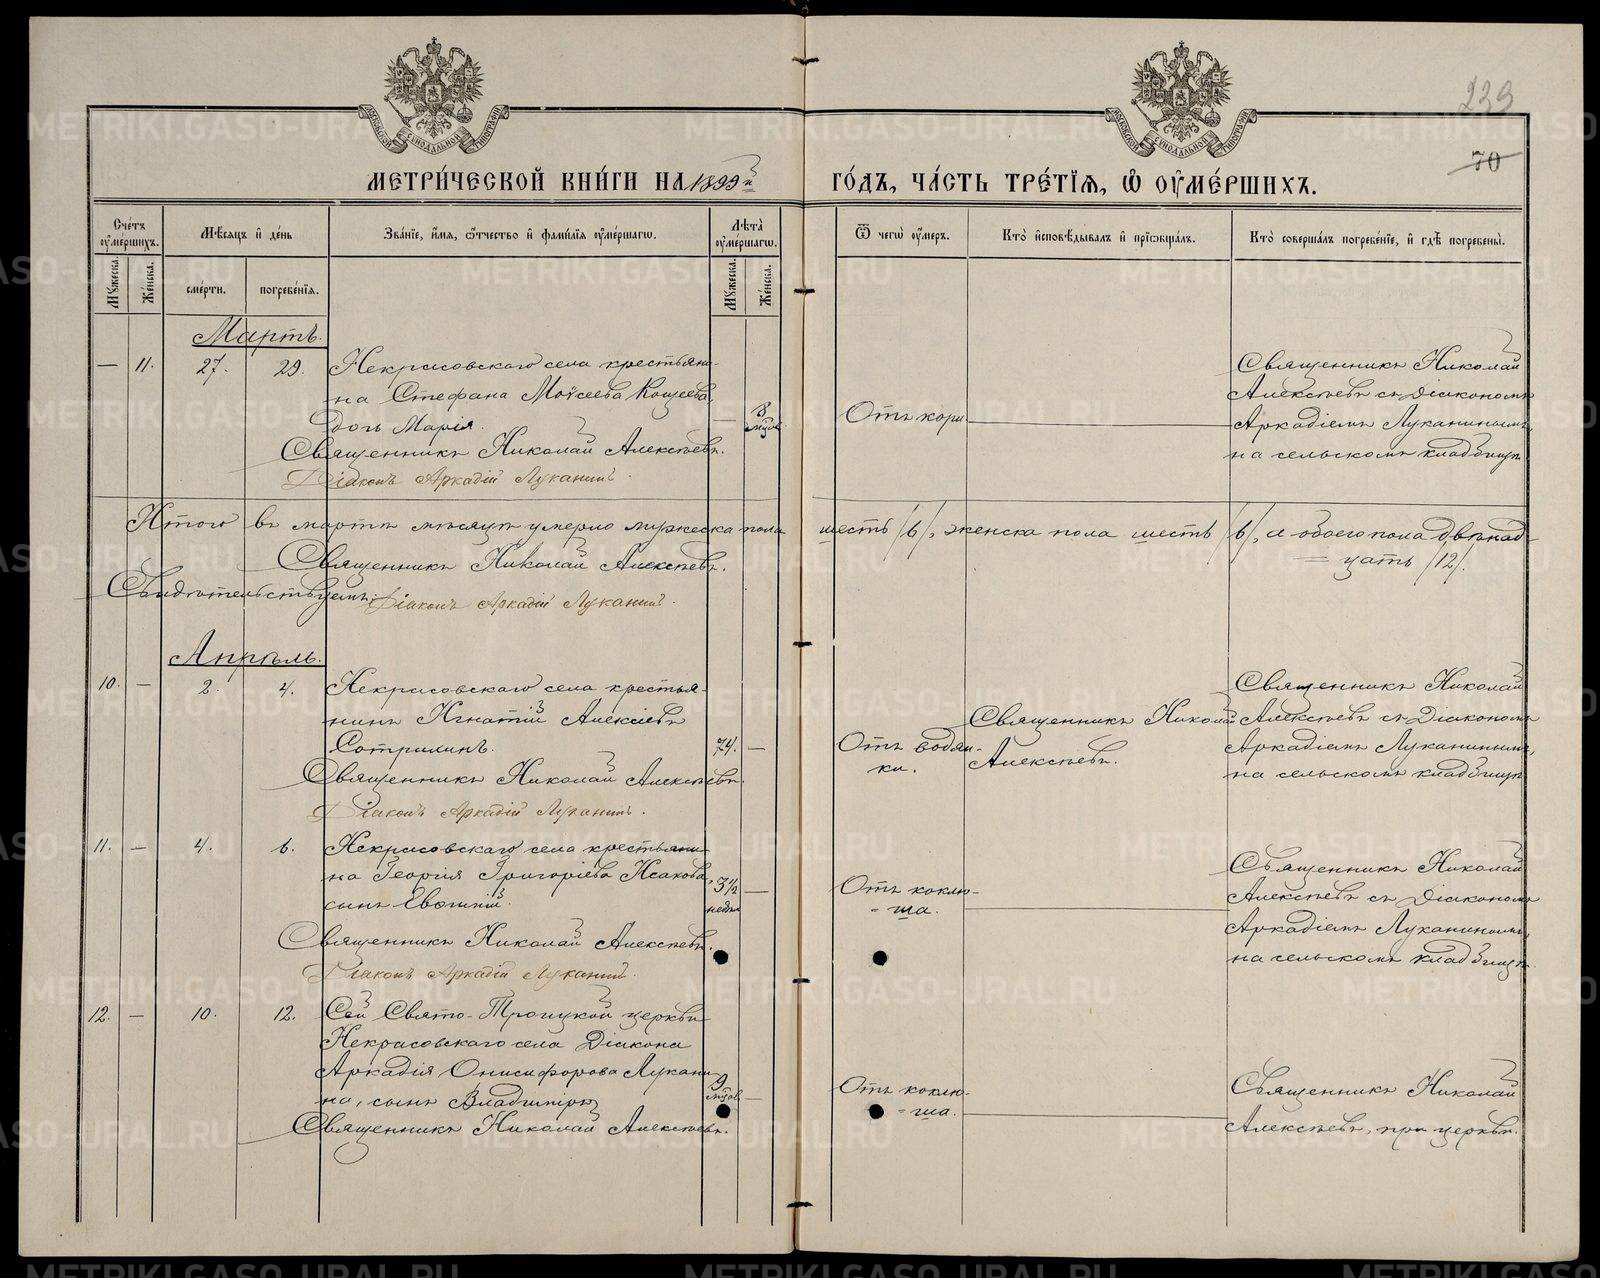 239
70
МЕТРИ́ЧЕСКОЙ КНИ́ГИ НА 1899й ГО́ДЪ, ЧА́СТЬ ТРЕ́ТЇѦ, Ѡ҆ ОУ҆МЕ́РШИХЪ.
МОСКОВСКОЙ СѴНОДАЛЬНОЙ ТИПОГРАФІИ
МОСКОВСКОЙ СѴНОДАЛЬНОЙ ТИПОГРАФІИ
Сче́тъ оу҆ме́ршихъ.
Мѣ́сѧцъ и҆ де́нь
Зва́нїе, и҆́мѧ, ѻ҆́тчество и҆ фами́лїѧ оу҆ме́ршагѡ.
Лѣ́та оу҆ме́ршагѡ.
Ѿ чегѡ̀ оу҆́меръ.
Кто̀ и҆сповѣ́дывалъ и҆ прїѡбща́лъ.
Кто̀ соверша́лъ погребе́нїе, и҆ гдѣ̀ погребены̀.
Мꙋ́жеска.
Же́нска.
сме́рти.
погребе́нїѧ.
Мꙋ́жеска.
Же́нска.
Мартъ.
— 11. 27. 29. Некрасовскаго села крестьяни-
на Стефана Моѵсеева Кощеева,
дочь Марія.
Священникъ Николай Алексѣевъ.
Діаконъ Аркадій Луканинъ.
— 8 мѣсяц.
Отъ кори
Священникъ Николай
Алексѣевъ съ Діакономъ
Аркадіемъ Луканинымъ,
на сельскомъ кладбищѣ.
Итого въ мартѣ мѣсяцѣ умерло мужеска пола шесть /6/, женска пола шесть /6/, а обоего пола двѣнад-
= цать /12/.
Священникъ Николай Алексѣевъ.
Свидѣтельствуемъ:
Діаконъ Аркадій Луканинъ.
Апрѣль.
10. — 2. 4. Некрасовскаго села крестья-
нинъ Игнатій Алексіевъ
Сотрилинъ.
Священникъ Николай Алексѣевъ.
Діаконъ Аркадій Луканинъ.
74. —
Отъ водян-
ки.
Священникъ Николай
Алексѣевъ.
Священникъ Николай
Алексѣевъ съ Діакономъ
Аркадіемъ Луканинымъ,
на сельскомъ кладбищѣ.
11. — 4. 6. Некрасовскаго села крестьяни-
на Георгія Григоріева Исакова,
сынъ Евгеній.
Священникъ Николай Алексѣевъ.
Діаконъ Аркадій Луканинъ.
3½ недѣл —
Отъ коклю-
= ша.
Священникъ Николай
Алексѣевъ съ Діакономъ
Аркадіемъ Луканинымъ,
на сельскомъ кладбищѣ.
12. — 10. 12. Сей Свято-Троицкой церкви
Некрасовскаго села Діакона
Аркадія Онисифорова Лукани-
на, сынъ Владиміръ
Священникъ Николай Алексѣевъ.
9 мѣсяц. —
Отъ коклю-
= ша.
Священникъ Николай
Алексѣевъ, при церкви.
METRIKI.GASO-URAL.RU